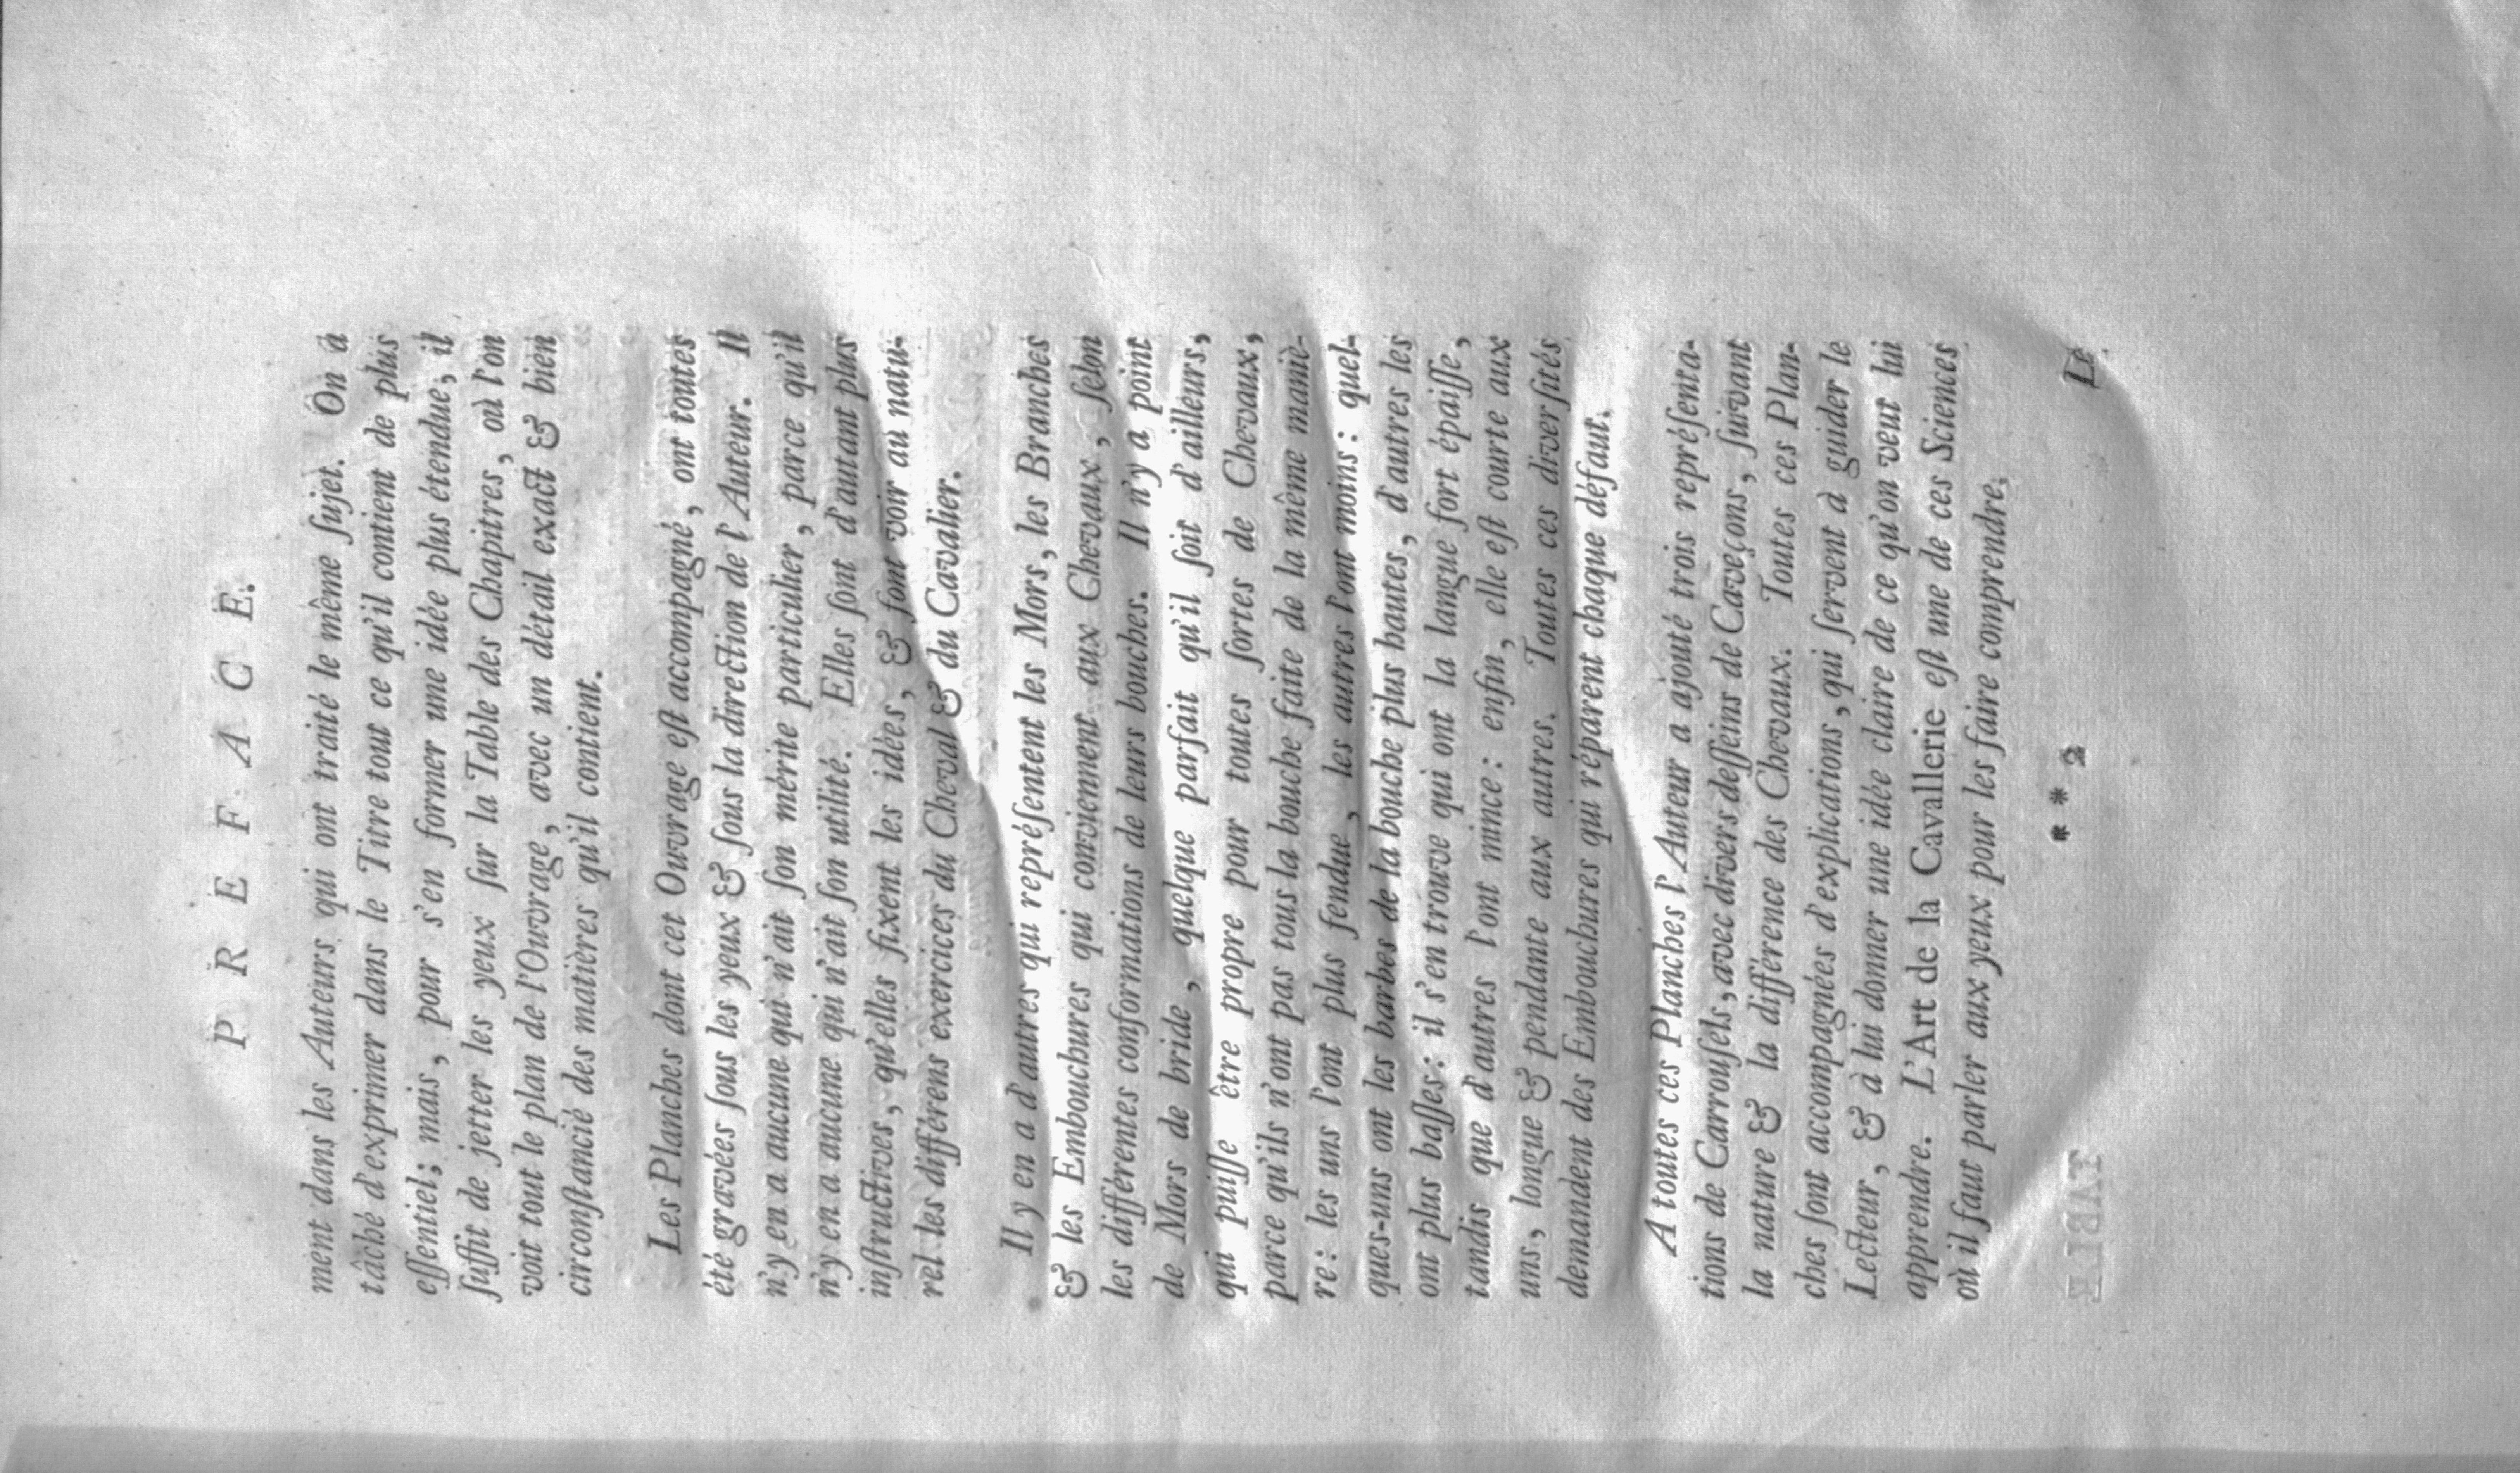 P R E F A C E.
ment dans les Auteurs qui ont traité le même ſujet. On a
tâché d'exprimer dans le Titre tout ce qu'il contient de plus
eſſentiel; mais, pour s'en former une idée plus étendue, il
ſuffit de jetter les yeux ſur la Table des Chapitres, où l'on
voit tout le plan de l'Ouvrage, avec un détail exact & bien
circonſtancié des matières qu'il contient.
Les Planches dont cet Ouvrage eſt accompagné, ont toutes
été gravées ſous les yeux & ſous la direction de l'Auteur. Il
n'y en a aucune qui n'ait ſon mérite particulier, parce qu'il
n'y en a aucune qui n'ait ſon utilité. Elles ſont d'autant plus
inſtructives, qu'elles fixent les idées, & ſont voir au natu-
rel les différens exercices du Cheval & du Cavalier.
Il y en a d'autres qui repréſentent les Mors, les Branches
& les Embouchures qui conviennent aux Chevaux, ſelon
les différentes conformations de leurs bouches. Il n'y a point
de Mors de bride, quelque parfait qu'il ſoit d'ailleurs,
qui puiſſe être propre pour toutes ſortes de Chevaux,
parce qu'ils n'ont pas tous la bouche faite de la même maniè-
re: les uns l'ont plus fendue, les autres l'ont moins: quel-
ques-uns ont les barbes de la bouche plus hautes, d'autres les
ont plus baſſes: il s'en trouve qui ont la langue fort épaiſſe,
tandis que d'autres l'ont mince: enfin, elle eſt courte aux
uns, longue & pendante aux autres. Toutes ces diverſités
demandent des Embouchures qui réparent chaque défaut.
A toutes ces Planches l'Auteur a ajouté trois repréſenta-
tions de Carrouſels, avec divers deſſeins de Caveçons, ſuivant
la nature & la différence des Chevaux. Toutes ces Plan-
ches ſont accompagnées d'explications, qui ſervent à guider le
Lecteur, & à lui donner une idée claire de ce qu'on veut lui
apprendre. L'Art de la Cavallerie eſt une de ces Sciences
où il faut parler aux yeux pour les faire comprendre.
* * 2
Le